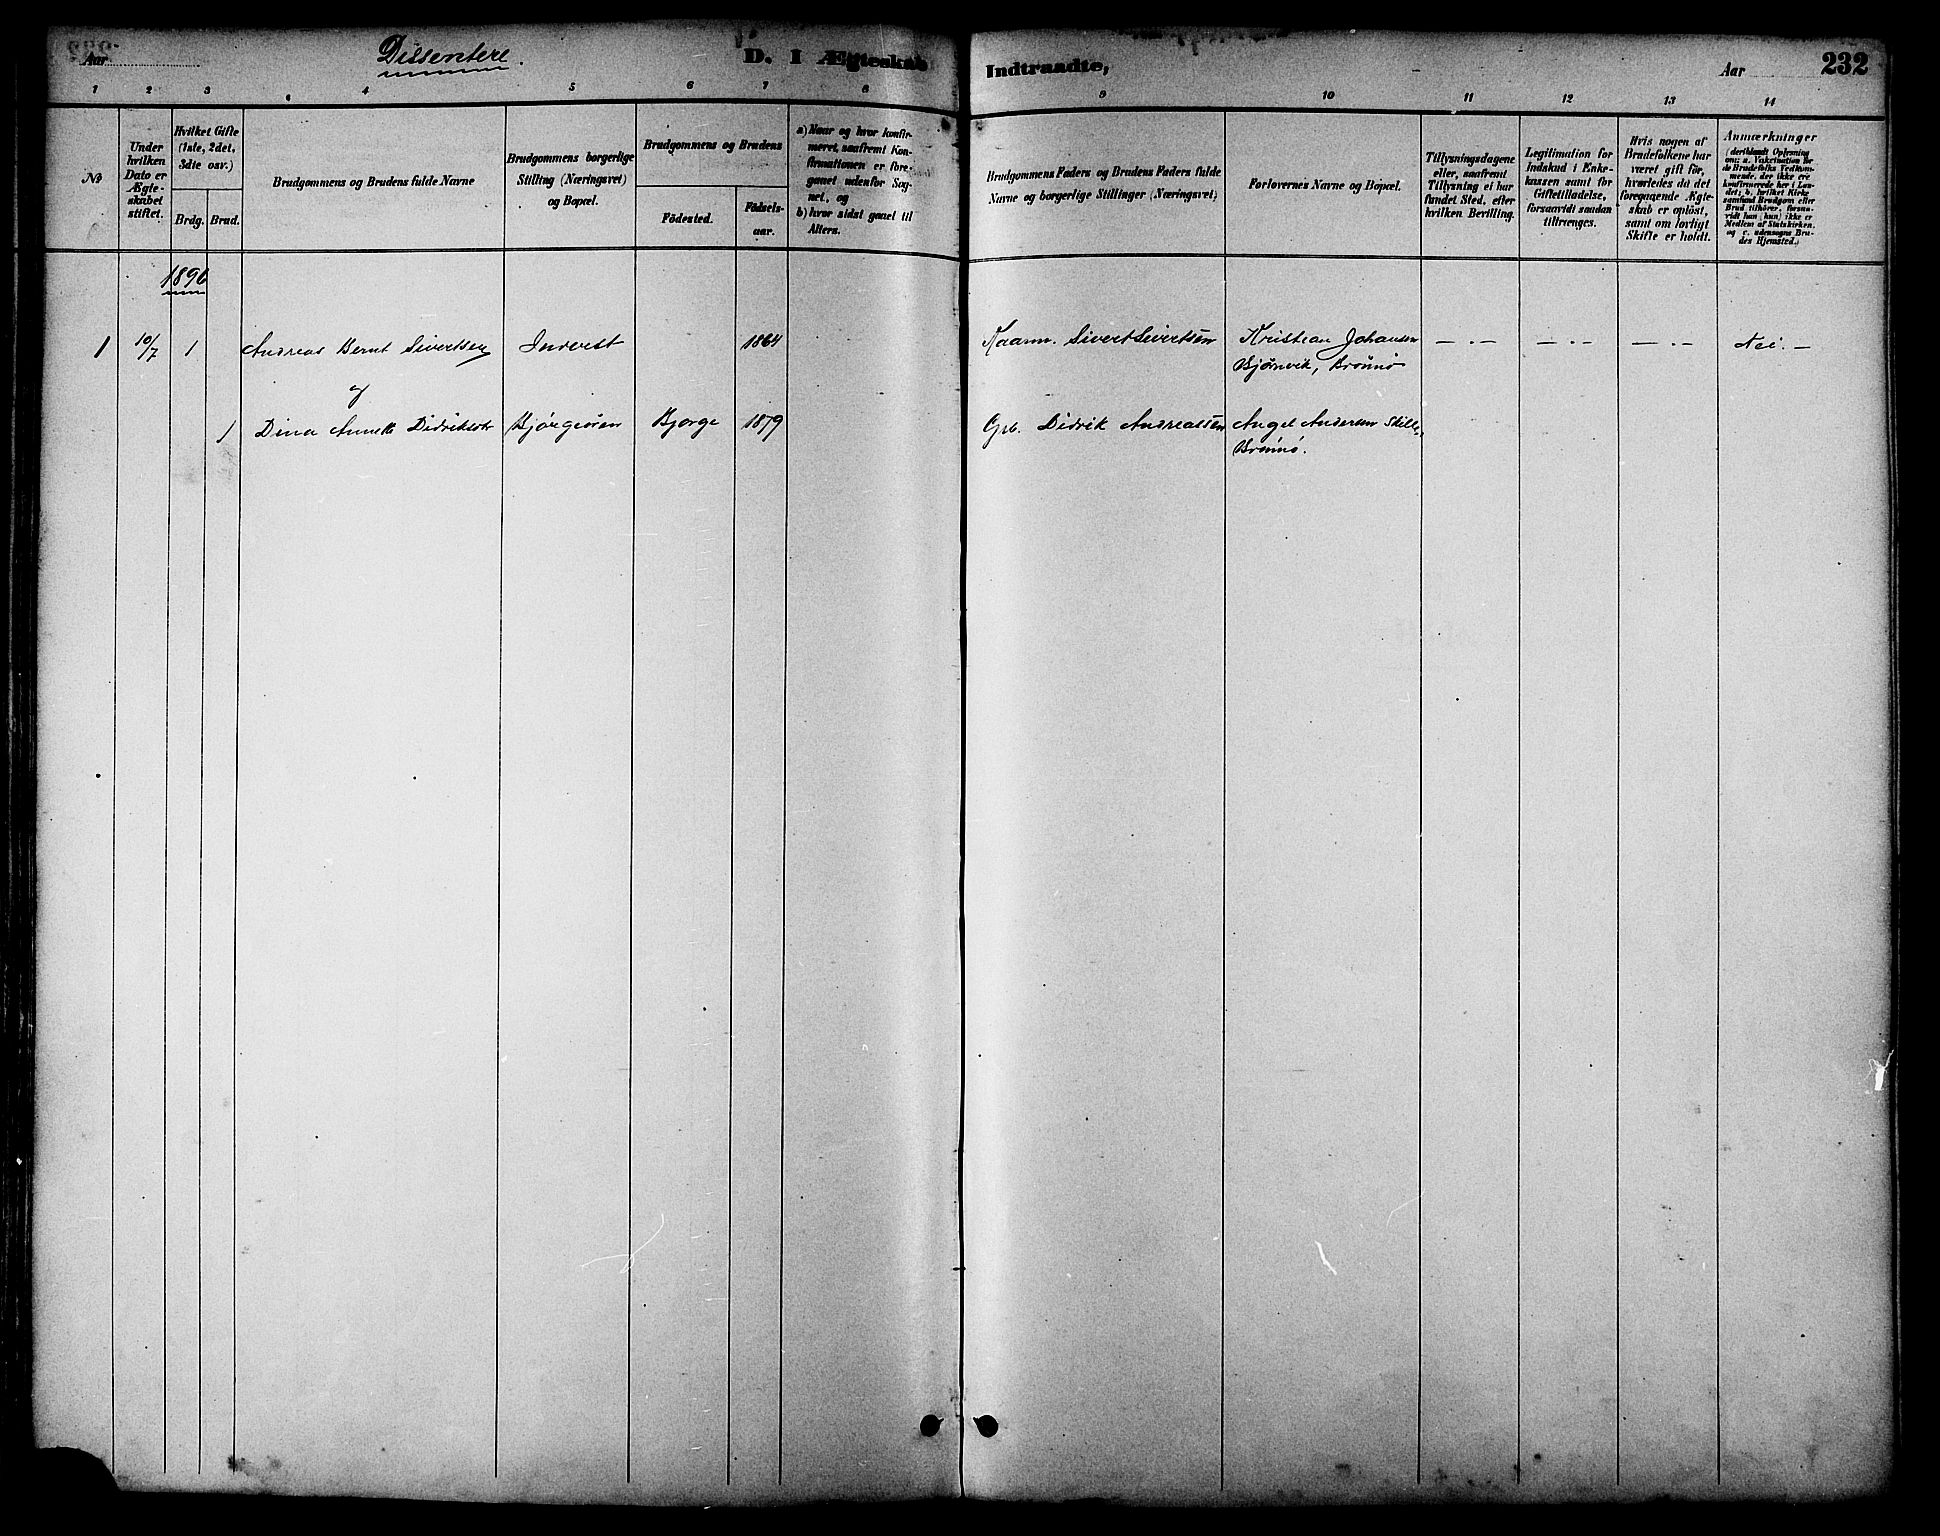 Aar
Dissentere.
D. I Ægteskab
Indtraadte,
Aar
232
1 2 3 4 5 6 7 8 9 10 11 12 13 14
No
Under
hvilken
Dato er
Ægte-
skabet
stiftet.
Hvilket Gifte
(1ste, 2det,
3dte osv.)
Brdg. Brud.
Brudgommens og Brudens fulde Navne
Brudgommens borgerlige
Stilling (Næringsvei)
og Bopæl.
Brudgommens og Brudens
Födested.
Födsels-
aar.
a) Naar og hvor konfir-
meret, saafremt Kon-
firmationen er fore-
gaaet udenfor Sog-
net, og
b) hvor sidst gaaet til
Alters.
Brudgommens Faders og Brudens Faders fulde
Navne og borgerlige Stillinger (Næringsvei)
Forlovernes Navne og Bopæl.
Tillysningsdagene
eller, saafremt
Tillysning ei har
fundet Sted, efter
hvilken Bevilling.
Legitimation for
Indskud i Enke-
kassen samt for
Giftetilladelse,
forsaavidt saadan
tiltrænges.
Hvis nogen af
Brudefolkene har
været gift før,
hvorledes da det
foregaaende Ægte-
skab er opløst,
samt om lovligt
Skifte er holdt.
Anmærkninger
(deriblandt Oplysning
om: a. Vakcination for
de Brudefolks Vedkom-
mende, der ikke ere
konfirmerede her i Lan-
det, b. hvilket Kirke
samfund Brudgom eller
Brud tilhører, forsaa-
vidt han (hun) ikke er
Medlem af Statskirken,
og c. udensogns Bru-
des Hjemsted.)
1896
1 10/7 1 Andreas Bernt Sivertsen Indvest 1864 Kaarm. Sivert Sivertsen Kristian Johansen — „ — — „ — — „ — Nei. —
Bjørnvik, Brønnø
og
1 Dina Annette Didriksdtr Bjørgeøren Bjørge 1879 Grb. Didrik Andreassen Angel Andersen Skille,
Brønnø.